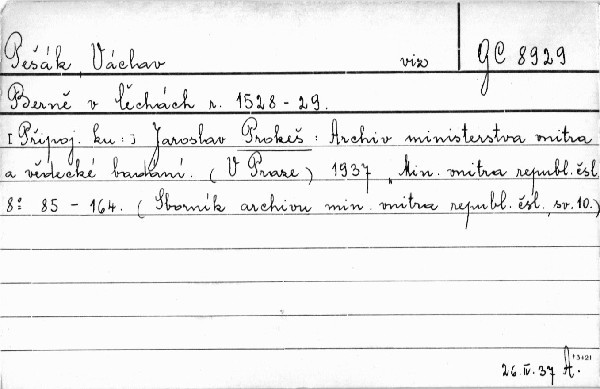 Pešák Václav viz GC 8929
Berně v Čěchách r. 1528 - 29.
[Připoj. ku:] Jaroslav Prokeš: Archiv ministerstva vnitra
a vědecké badání. (V Praze) 1937, Min. vnitra republ. čsl.
8º 85 - 164. (Sborník archivu min. vnitra republ. čsl., sv. 10.)
26. IV. 37 A. 13421